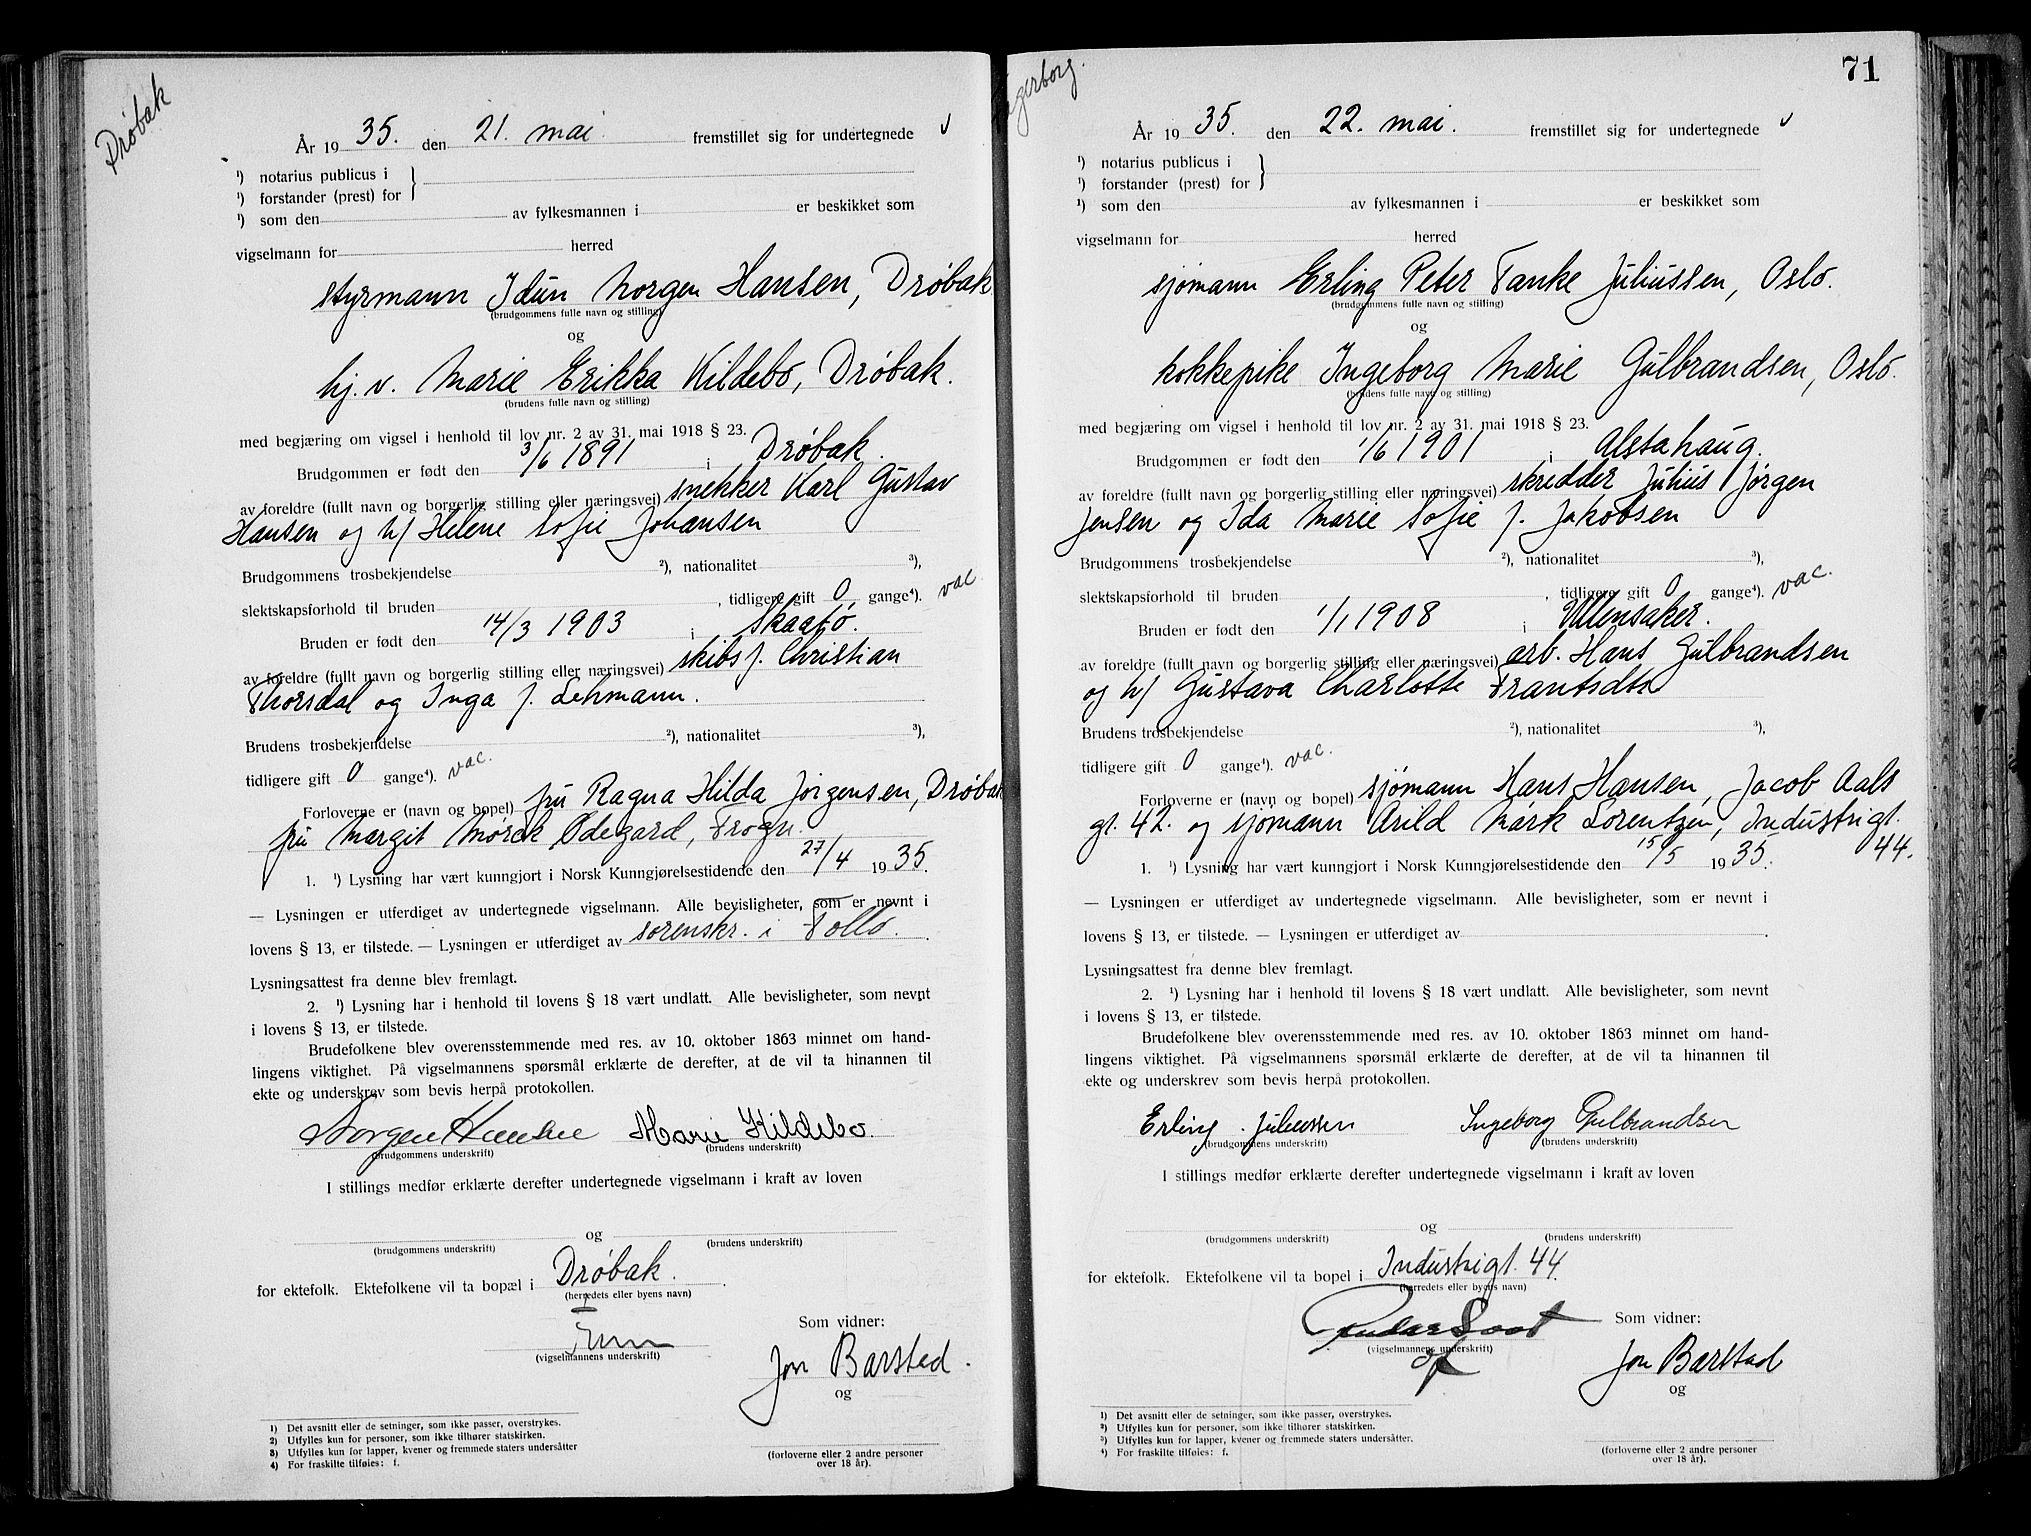 Drøbak
År 1935. den 21. mai. fremstillet sig for undertegnede
¹) notarius publicus i
¹) forstander (prest) for
¹) som den av fylkesmannen i er beskikket som
vigselmann for herred
styrmann Idun Norgen Hansen, Drøbak
(brudgommens fulle navn og stilling)
og
hj. v. Marie Erikka Kildebo, Drøbak.
(brudens fulle navn og stilling)
med begjæring om vigsel i henhold til lov nr. 2 av 31. mai 1918 § 23.
Brudgommen er født den 3/6 1891 i Drøbak.
av foreldre (fullt navn og borgerlig stilling eller næringsvei) snekker Karl Gustav
Hansen og h/ Helene Sofie Johansen
Brudgommens trosbekjendelse ²), nationalitet ³),
slektskapsforhold til bruden , tidligere gift 0 gange⁴). vac
Bruden er født den 14/3 1903 i Skaatø.
av foreldre (fullt navn og borgerlig stilling eller næringsvei) skibsf. Christian
Thorsdal og Inga f. Lehmann.
Brudens trosbekjendelse ²), nationalitet ³),
tidligere gift 0 gange⁴). vac.
Forloverne er (navn og bopel) fru Ragna Hilda Jørgensen, Drøbak
fru Margit Mørck Ødegard, Frogn.
1. ¹) Lysning har vært kunngjort i Norsk Kunngjørelsestidende den 27/4 1935.
— Lysningen er utferdiget av undertegnede vigselmann. Alle bevisligheter, som er nevnt i
lovens § 13, er tilstede. — Lysningen er utferdiget av sorenskr. i Follo.
Lysningsattest fra denne blev fremlagt.
2. ¹) Lysning har i henhold til lovens § 18 vært undlatt. Alle bevisligheter, som nevnt
i lovens § 13, er tilstede.
Brudefolkene blev overensstemmende med res. av 10. oktober 1863 minnet om hand-
lingens viktighet. På vigselmannens spørsmål erklærte de derefter, at de vil ta hinannen til
ekte og underskrev som bevis herpå protokollen.
Norgen Hansen Marie Kildebo.
(brudgommens underskrift) (brudens underskrift)
I stillings medfør erklærte derefter undertegnede vigselmann i kraft av loven
og
(brudgommens underskrift) (brudens underskrift)
for ektefolk. Ektefolkene vil ta bopæl i Drøbak.
(herredets eller byens navn)
Som vidner:
(vigselmannens underskrift)
Jon Barstad.
og
1) Det avsnitt eller de setninger, som ikke passer, overstrykes.
2) Utfylles kun for personer, som ikke tilhører statskirken.
3) Utfylles kun for lapper, kvener og fremmede staters undersåtter
4) For fraskilte tilføies: f.
(forloverne eller 2 andre personer
over 18 år).
71
År 1935. den 22. mai. fremstillet sig for undertegnede
¹) notarius publicus i
¹) forstander (prest) for
¹) som den av fylkesmannen i er beskikket som
vigselmann for herred
sjømann Erling Peter Tanke Juliussen, Oslo.
(brudgommens fulle navn og stilling)
og
kokkepike Ingeborg Marie Gulbrandsen, Oslo.
(brudens fulle navn og stilling)
med begjæring om vigsel i henhold til lov nr. 2 av 31. mai 1918 § 23.
Brudgommen er født den 1/6 1901 i Alstahaug.
av foreldre (fullt navn og borgerlig stilling eller næringsvei) skredder Julius Jørgen
Jensen og Ida Marie Sofie f. Jakobsen
Brudgommens trosbekjendelse ²), nationalitet ³),
slektskapsforhold til bruden , tidligere gift 0 gange⁴). vac.
Bruden er født den 1/1 1908 i Ullensaker.
av foreldre (fullt navn og borgerlig stilling eller næringsvei) arb. Hans Gulbrandsen
og h/ Gustava Charlotte Frantsdtr
Brudens trosbekjendelse ²), nationalitet ³),
tidligere gift 0 gange⁴). vac.
Forloverne er (navn og bopel) sjømann Hans Hansen, Jacob Aals
gt. 42. og sjømann Arild Mørk Lorentzen, Industrigt.
44.
1. ¹) Lysning har vært kunngjort i Norsk Kunngjørelsestidende den 15/5 1935.
— Lysningen er utferdiget av undertegnede vigselmann. Alle bevisligheter, som er nevnt i
lovens § 13, er tilstede. — Lysningen er utferdiget av .
Lysningsattest fra denne blev fremlagt.
2. ¹) Lysning har i henhold til lovens § 18 vært undlatt. Alle bevisligheter, som nevnt
i lovens § 13, er tilstede.
Brudefolkene blev overensstemmende med res. av 10. oktober 1863 minnet om hand-
lingens viktighet. På vigselmannens spørsmål erklærte de derefter, at de vil ta hinannen til
ekte og underskrev som bevis herpå protokollen.
Erling Juliussen Ingeborg Gulbrandsen
(brudgommens underskrift) (brudens underskrift)
I stillings medfør erklærte derefter undertegnede vigselmann i kraft av loven
og
(brudgommens underskrift) (brudens underskrift)
for ektefolk. Ektefolkene vil ta bopel i Industrigt. 44.
(herredets eller byens navn)
Som vidner:
(vigselmannens underskrift)
Jon Barstad
og
1) Det avsnitt eller de setninger, som ikke passer, overstrykes.
2) Utfylles kun for personer, som ikke tilhører statskirken.
3) Utfylles kun for lapper, kvener og fremmede staters undersåtter.
4) For fraskilte tilføies: f.
(forloverne eller 2 andre personer
over 18 år).